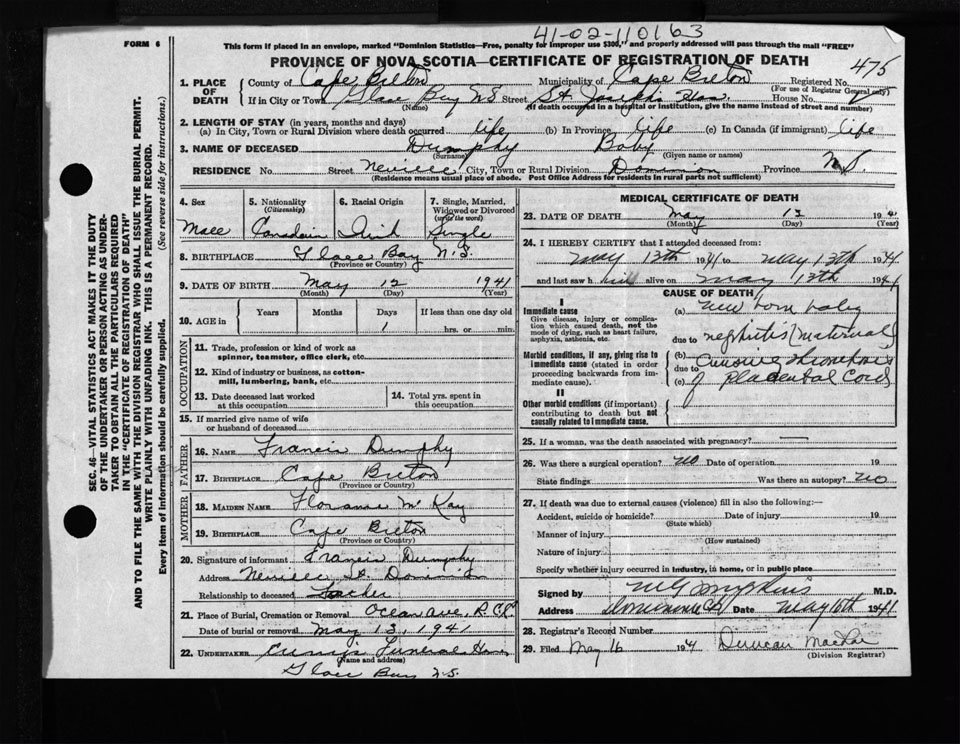 41-02-110163
FORM 6
This form if placed in an envelope, marked "Dominion Statistics—Free, penalty for improper use $300," and properly addressed will pass through the mail "FREE"
PROVINCE OF NOVA SCOTIA—CERTIFICATE OF REGISTRATION OF DEATH
475
1. PLACE OF DEATH
County of Cape Breton Municipality of Cape Breton Registered No.
(For use of Registrar General only)
If in City or Town Glace Bay NS Street St Joseph's Hos House No.
(Name) (If death occurred in a hospital or institution, give the name instead of street and number)
2. LENGTH OF STAY (in years, months and days)
(a) In City, Town or Rural Division where death occurred life (b) In Province life (c) In Canada (if immigrant) life
3. NAME OF DECEASED Dumphy Baby
(Surname) (Given name or names)
RESIDENCE No. Street Neville City, Town or Rural Division Dominion Province N.S.
(Residence means usual place of abode. Post Office Address for residents in rural parts not sufficient)
4. Sex 5. Nationality (Citizenship) 6. Racial Origin 7. Single, Married, Widowed or Divorced (write the word)
Male Canadain Irish Single
8. BIRTHPLACE Glace Bay N.S.
(Province or Country)
9. DATE OF BIRTH May 12 1941
(Month) (Day) (Year)
10. AGE in Years Months Days If less than one day
1 hrs. or min.
OCCUPATION
11. Trade, profession or kind of work as spinner, teamster, office clerk, etc.
12. Kind of industry or business, as cotton-mill, lumbering, bank, etc.
13. Date deceased last worked at this occupation
14. Total yrs. spent in this occupation
15. If married give name of wife or husband of deceased
FATHER
16. NAME Francis Dumphy
17. BIRTHPLACE Cape Breton
(Province or Country)
MOTHER
18. MAIDEN NAME McKay
19. BIRTHPLACE Cape Breton
(Province or Country)
20. Signature of informant Francis Dumphy
Address Neville St. Dominion
Relationship to deceased Father
21. Place of Burial, Cremation or Removal Ocean Ave. R.C.
Date of burial or removal May 13, 1941
22. UNDERTAKER Funeral Home
(Name and address)
Glace Bay N.S.
MEDICAL CERTIFICATE OF DEATH
23. DATE OF DEATH May 13 1941
(Month) (Day) (Year)
24. I HEREBY CERTIFY that I attended deceased from:
May 13th 1941 to May 13th 1941
and last saw h alive on May 13th 1941
CAUSE OF DEATH
I
Immediate cause
Give disease, injury or complication which caused death, not the mode of dying, such as heart failure, asphyxia, asthenia, etc.
(a) New born baby
due to nephritis (maternal)
Morbid conditions, if any, giving rise to immediate cause (stated in order proceeding backwards from immediate cause).
(b)
(c) of placental Cord
II
Other morbid conditions (if important) contributing to death but not causally related to immediate cause.
25. If a woman, was the death associated with pregnancy? —
26. Was there a surgical operation? no Date of operation 19
State findings Was there an autopsy? no
27. If death was due to external causes (violence) fill in also the following:—
Accident, suicide or homicide? Date of injury 19
(State which)
Manner of injury
(How sustained)
Nature of injury
Specify whether injury occurred in industry, in home, or in public place
Signed by M.D.
Address Date May 16th 1941
28. Registrar's Record Number
29. Filed May 16 194 Duncan
(Division Registrar)
SEC. 46—VITAL STATISTICS ACT MAKES IT THE DUTY
OF THE UNDERTAKER OR PERSON ACTING AS UNDER-
TAKER TO OBTAIN ALL THE PARTICULARS REQUIRED
IN THE "CERTIFICATE OF REGISTRATION OF DEATH"
AND TO FILE THE SAME WITH THE DIVISION REGISTRAR WHO SHALL ISSUE THE BURIAL PERMIT.
WRITE PLAINLY WITH UNFADING INK. THIS IS A PERMANENT RECORD.
Every item of information should be carefully supplied. (See reverse side for instructions.)